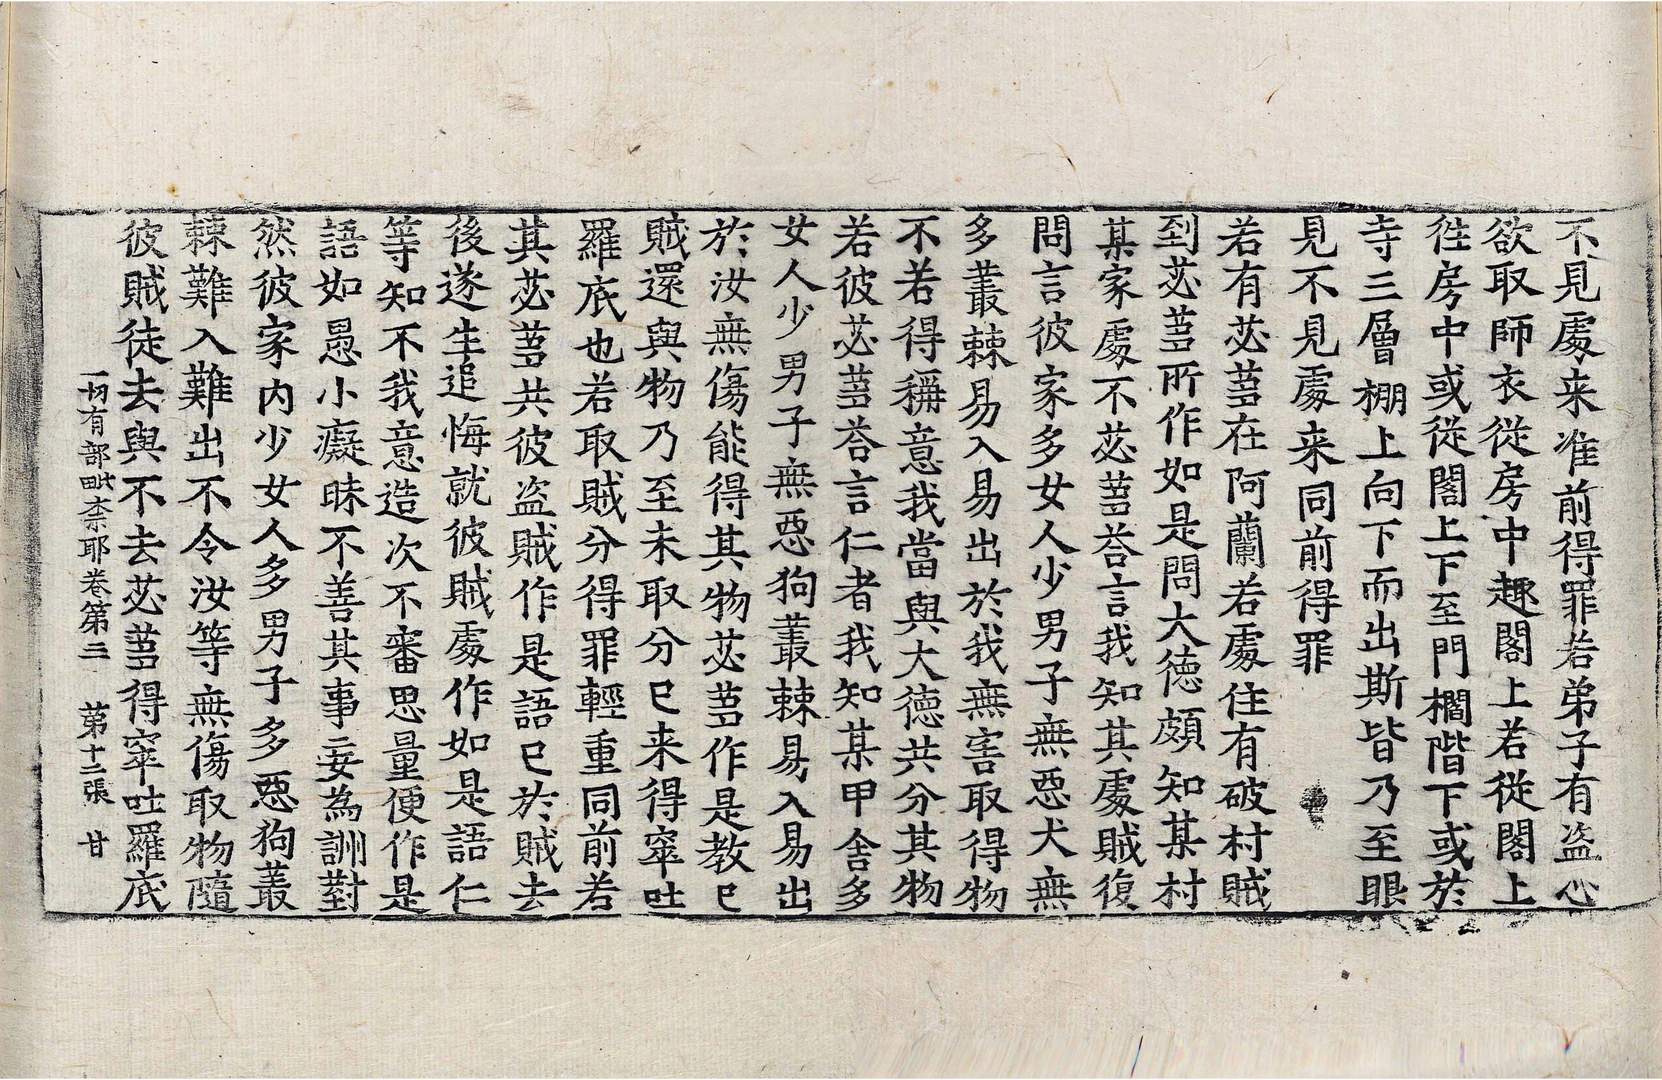 不見處来准前得罪若弟子有盗心
欲取師衣從房中趣閣上若從閣上
徃房中或從閣上下至門櫩階下或於
寺三層棚上向下而出斯皆乃至眼
見不見處来同前得罪
若有苾蒭在阿蘭若處住有破村賊
到苾蒭所作如是問大徳頗知某村
某家處不苾蒭荅言我知其處賊復
問言彼家多女人少男子無惡犬無
多叢棘易入易出於我無害取得物
不若得稱意我當與大徳共分其物
若彼苾蒭荅言仁者我知某甲舍多
女人少男子無惡狗叢棘易入易出
於汝無傷能得其物苾蒭作是教已
賊還與物乃至未取分已来得窣吐
羅底也若取賊分得罪輕重同前若
其苾蒭共彼盗賊作是語已於賊去
後遂生追悔就彼賊處作如是語仁
等知不我意造次不審思量便作是
語如愚小癡昧不善其事妄為詶對
然彼家内少女人多男子多惡狗叢
棘難入難出不令汝等無傷取物隨
彼賊徒去與不去苾蒭得窣吐羅底
一切有部毗柰耶卷第三 第十二張 甘